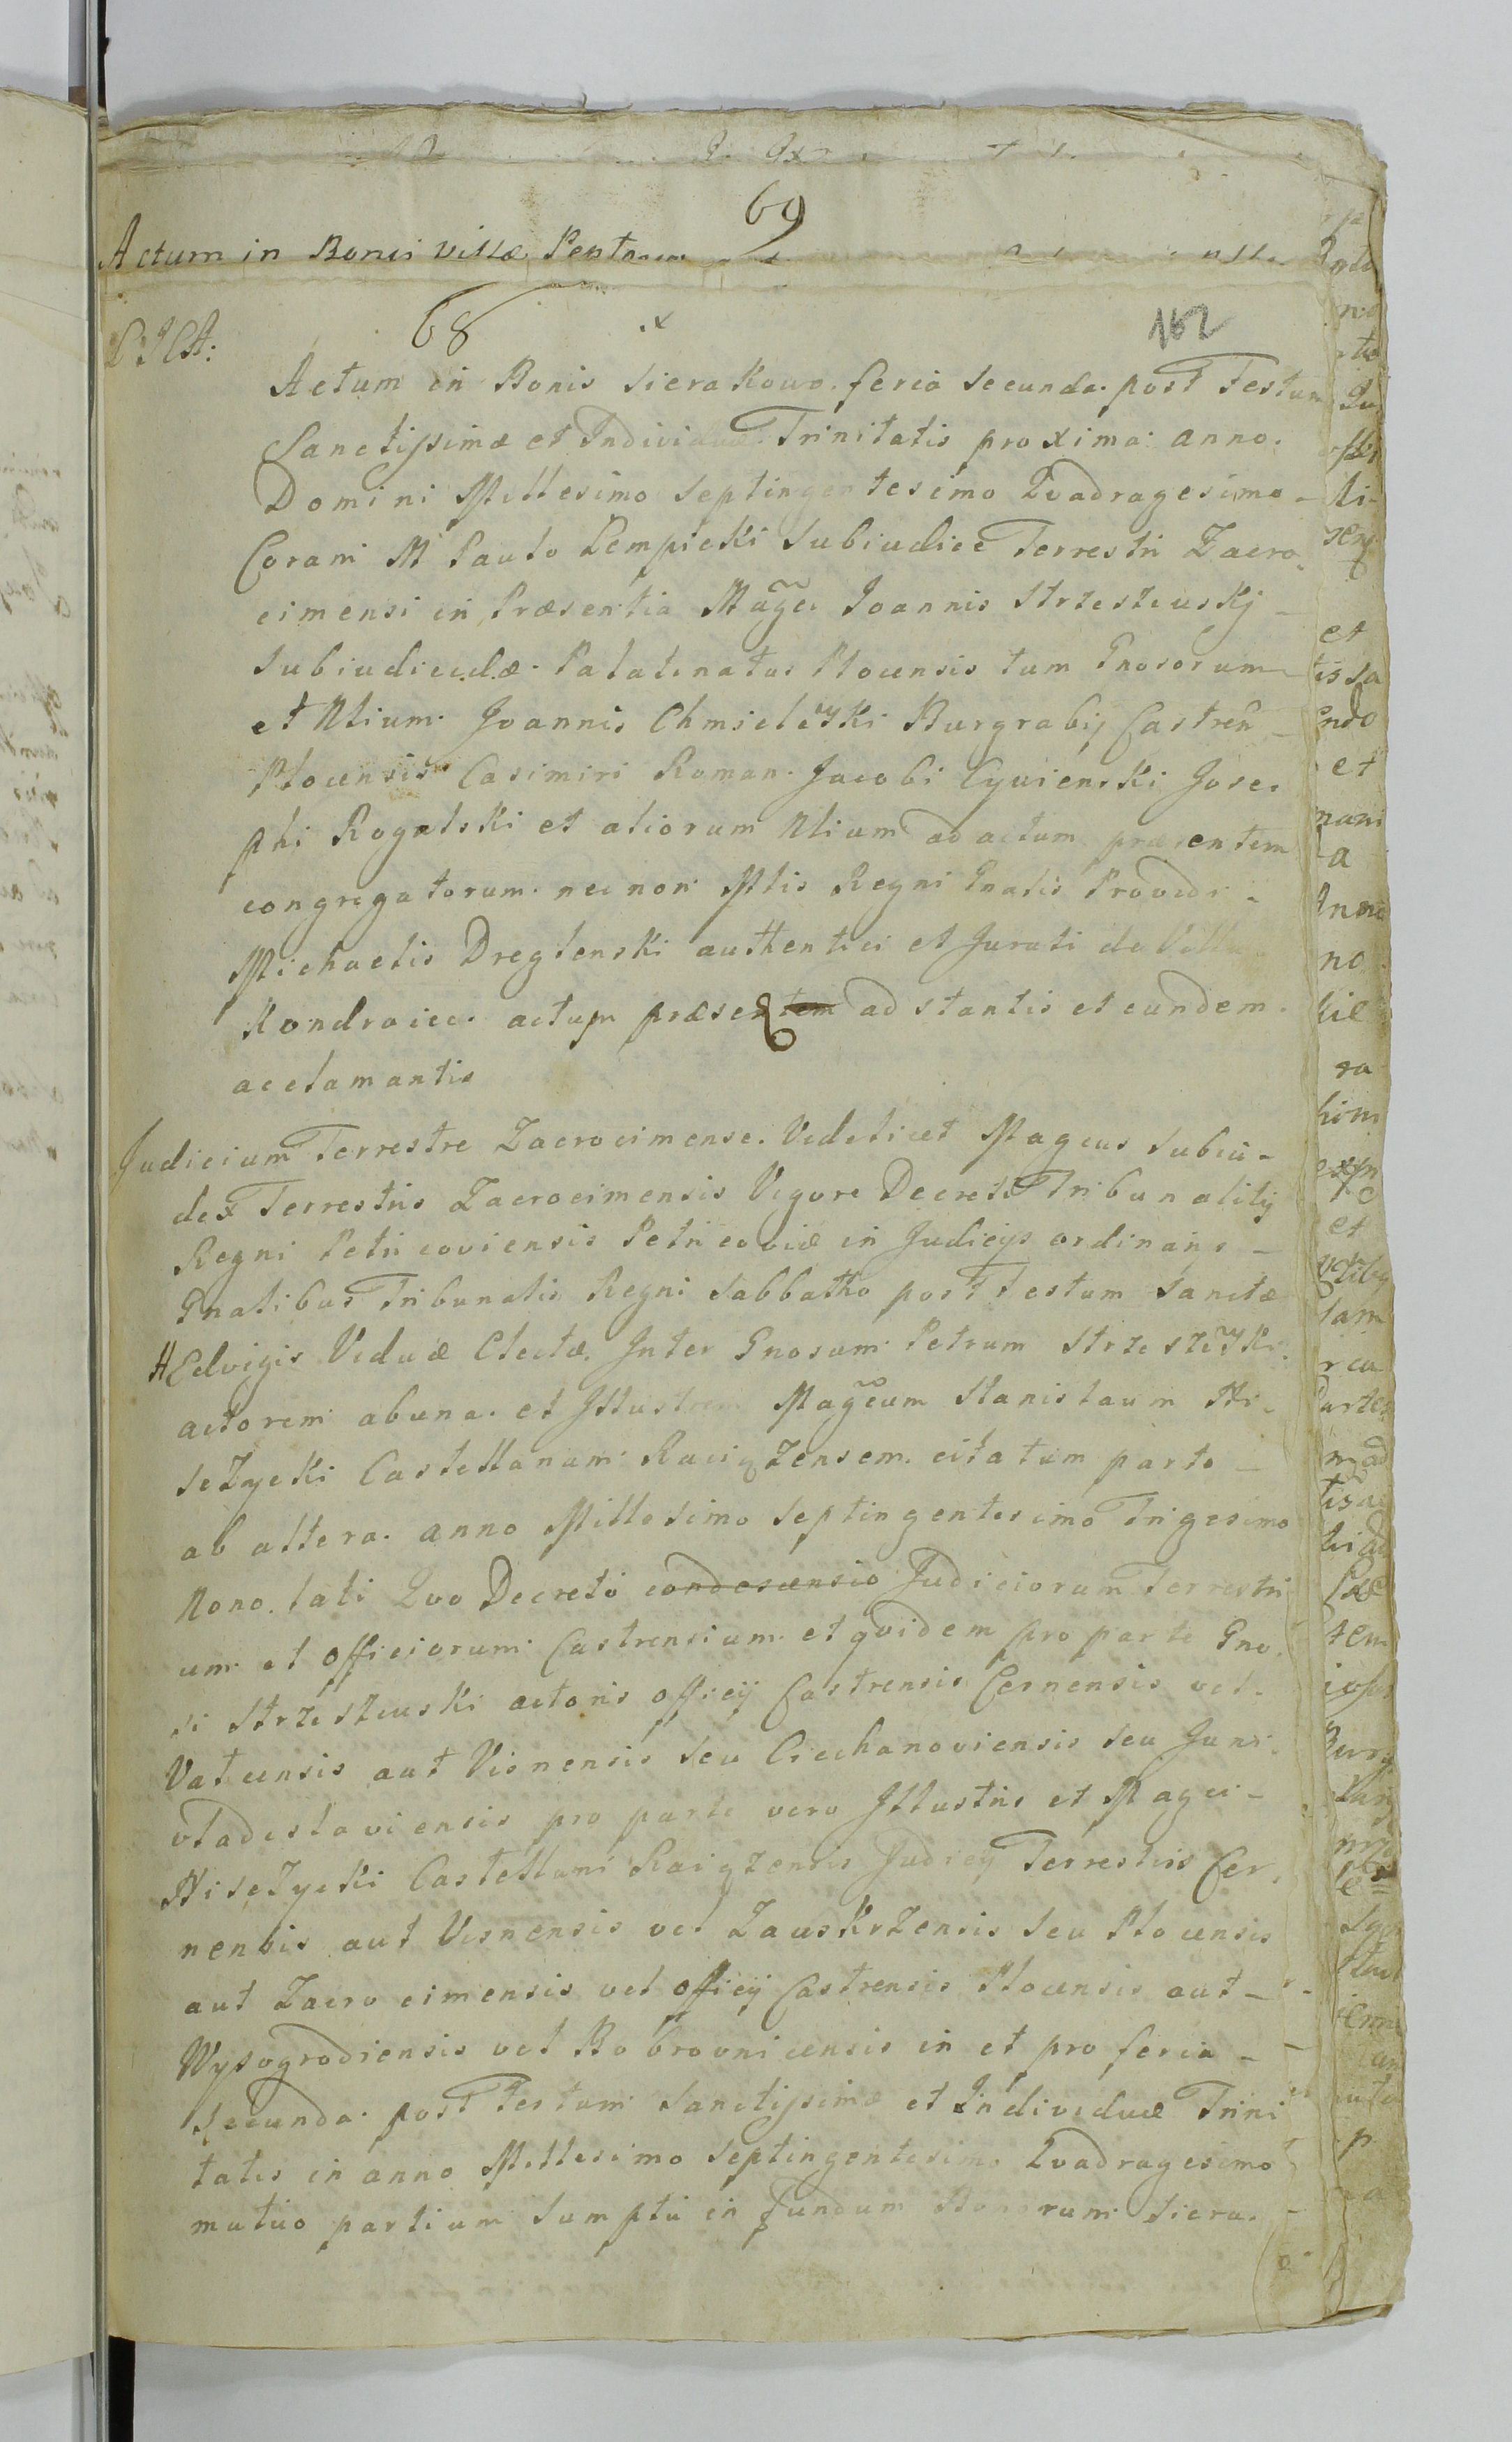 69
Actum in Bonis Villæ
68
162
Actum in Bonis Sierakowo feria secunda post Festum
Sanctissimæ et Individuæ Trinitatis proxima anno
Domini Millesimo Septingentesimo Qvadragesimo
Coram M Paulo Lempicki Subiudice Terrestri Zacro
cimensi in Præsentia Magci Joannis Strzeszewskj
Palatinatus Plocensis tum Gnosorum
et Nlium Joannis Chmielewski Burgrabij Castren
Plocensis Casimiri Roman Jacobi Cywienski Jose
phi Rogalski et aliorum Nlium ad actum præsentem
congregatorum nec non Mlis Regni Gnalis Providi
Michaelis authentici et Jurati de Villa
actum ad stantis et eundem
acclamantis
Judicium Terrestre Zacrocimense Videlicet Magcus Subiu-
dex Terrestris Zacrocimensis Vigore Decreti Tribunalitij
Regni Petricoviensis Petricoviæ in Judicijs ordinarijs
Gnalibus Tribunalis Regni Sabbatho post Festum Sanctæ
HEdvigis Viduæ Electæ Inter Gnosum Petrum Strzeszewski
actorem ab una et Illustrem Magcum Stanislaum Ni-
sczycki Castellanum Raciązensem citatum parte
ab altera anno Millesimo Septingentesimo Trigesimo
Nono lati Qvo Decreto condescensio Judiciorum Terrestri
um et officiorum Castrensium et qvidem pro parte Gno
si Strzeszewski actoris officij Castrensis Cernensis vel
aut Visnensis seu Ciechanoviensis seu Juni
vladislaviensis pro parte vero Illustris et Magci
Castellani Raciązensis Judicij Terrestris Cer
nensis aut Visnensis vel Zawskrzensis seu Plocensis
aut Zacrocimensis vel officij Castrensis Plocensis aut
Wysogrodiensis vel Bobrovnicensis in et pro feria
Secunda post Festum Sanctissimæ et Individuæ Trini
tatis in anno Millesimo Septingentesimo Qvadragesimo
mutuo partium sumptu in Fundum Bonorum Siera